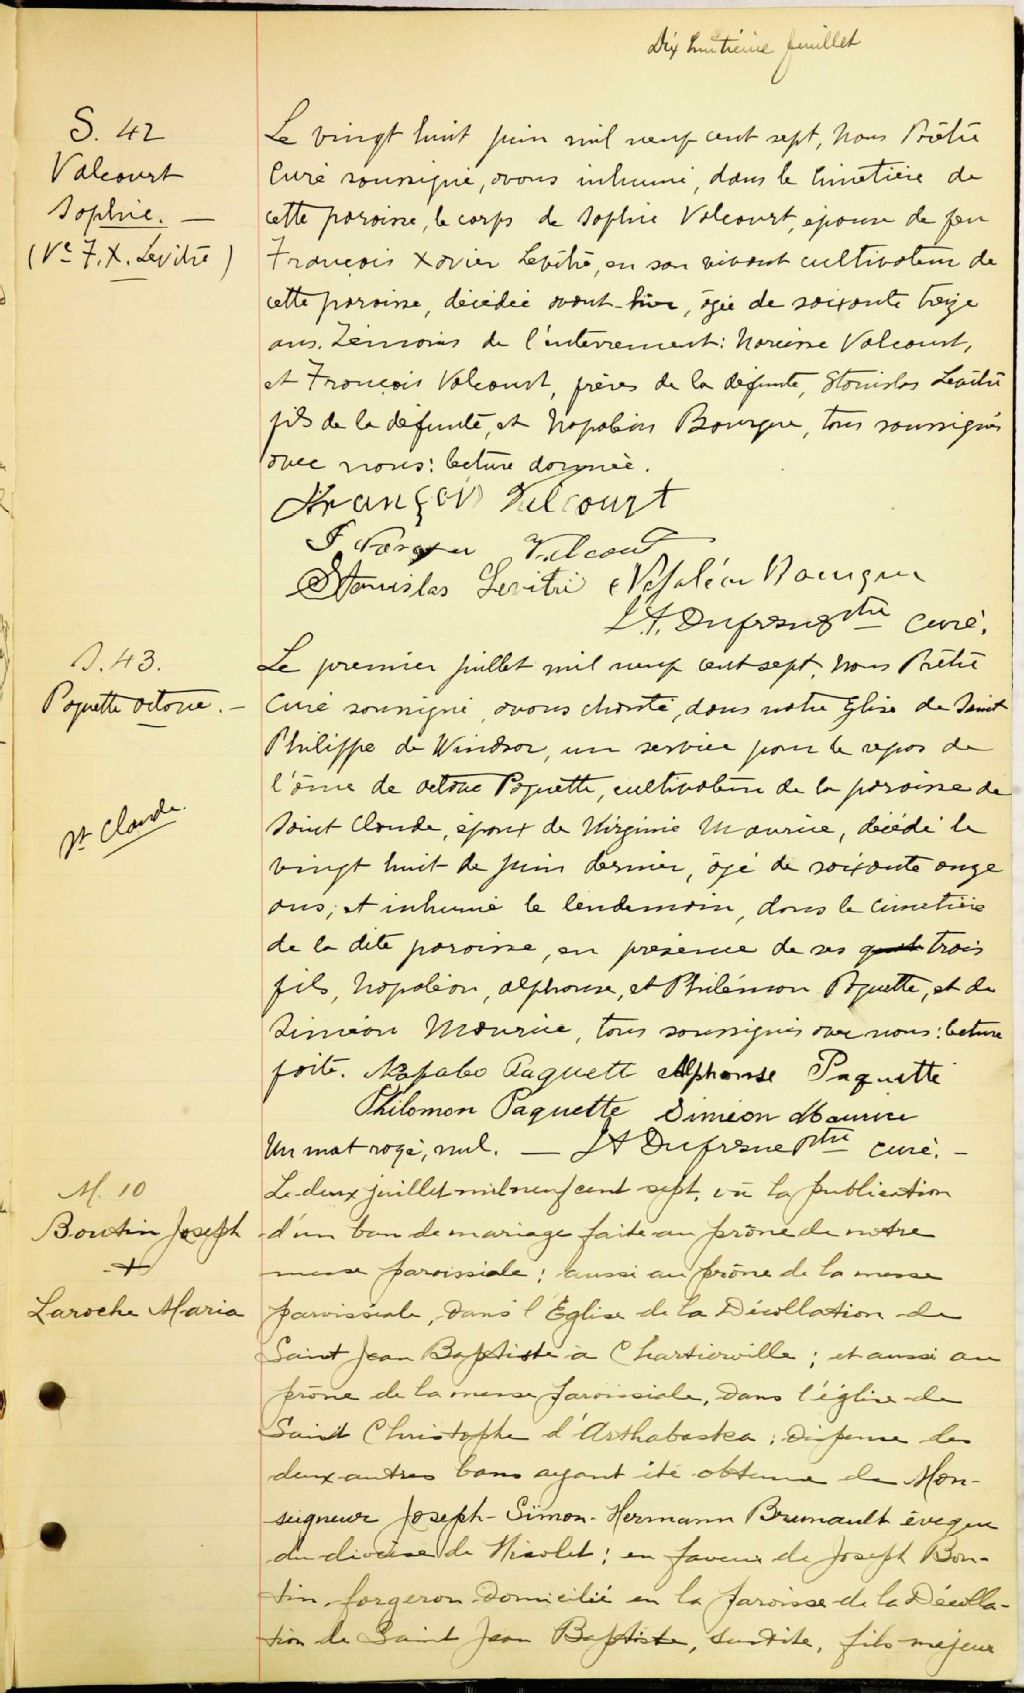 Dix huitième feuillet
S. 42
Valcourt
Sophie. —
(Ve F. X. Levitré)
Le vingt huit juin mil neuf cent sept, Nous Prêtre
Curé soussigné, avons inhumé, dans le Cimetière de
cette paroisse, le corps de Sophie Valcourt, épouse de feu
François Xavier Levitré, en son vivant cultivateur de
cette paroisse, décédée avant-hier, âgée de soixante treize
ans. Témoins de l'enterrement: Narcisse Valcourt,
et François Valcourt, frères de la défunte, Stanislas Levitré
fils de la défunte, et Napoléon Bourque, tous soussignés
avec nous: lecture donnée.
François Valcourt
Valcourt
Stanislas Levitré Napoléon Bourque
L.A. Dufresne ptre curé.
S. 43.
Paquette Octave. —
St Claude.
Le premier juillet mil neuf cent sept, Nous Prêtre
Curé soussigné, avons chanté, dans notre Eglise de Saint
Philippe de Windsor, un service pour le repos de
l'âme de Octave Paquette, cultivateur de la paroisse de
Saint Claude, époux de Virginie Maurice, décédé le
vingt huit de juin dernier, âgé de soixante onze
ans; et inhumé le lendemain, dans le cimetière
de la dite paroisse, en présence de ses trois
fils, Napoléon, Alphonse, et Philémon Paquette, et de
Siméon Maurice, tous soussignés avec nous: lecture
faite. Napaleo Paquett Alphonse Paquette
Philomon Paquette Siméon Maurice
Un mot rayé, nul. — LA Dufresne ptre curé. —
M. 10
Boutin Joseph
+
Laroche Maria
Le deux juillet mil neuf cent sept, vu la publication
d'un ban de mariage faite au prône de notre
messe paroissiale; aussi au prône de la messe
paroissiale, dans l'Église de la Décollation de
Saint Jean Baptiste à Chartierville; et aussi au
prône de la messe paroissiale, dans l'église de
Saint Christophe d'Arthabaska; dispense des
deux autres bans ayant été obtenue de Mon-
seigneur Joseph-Simon-Hermann Brunault évêque
du diocèse de Nicolet; en faveur de Joseph Bou-
tin, forgeron domicilié en la paroisse de la Décolla-
tion de Saint Jean Baptiste, susdite, fils majeur